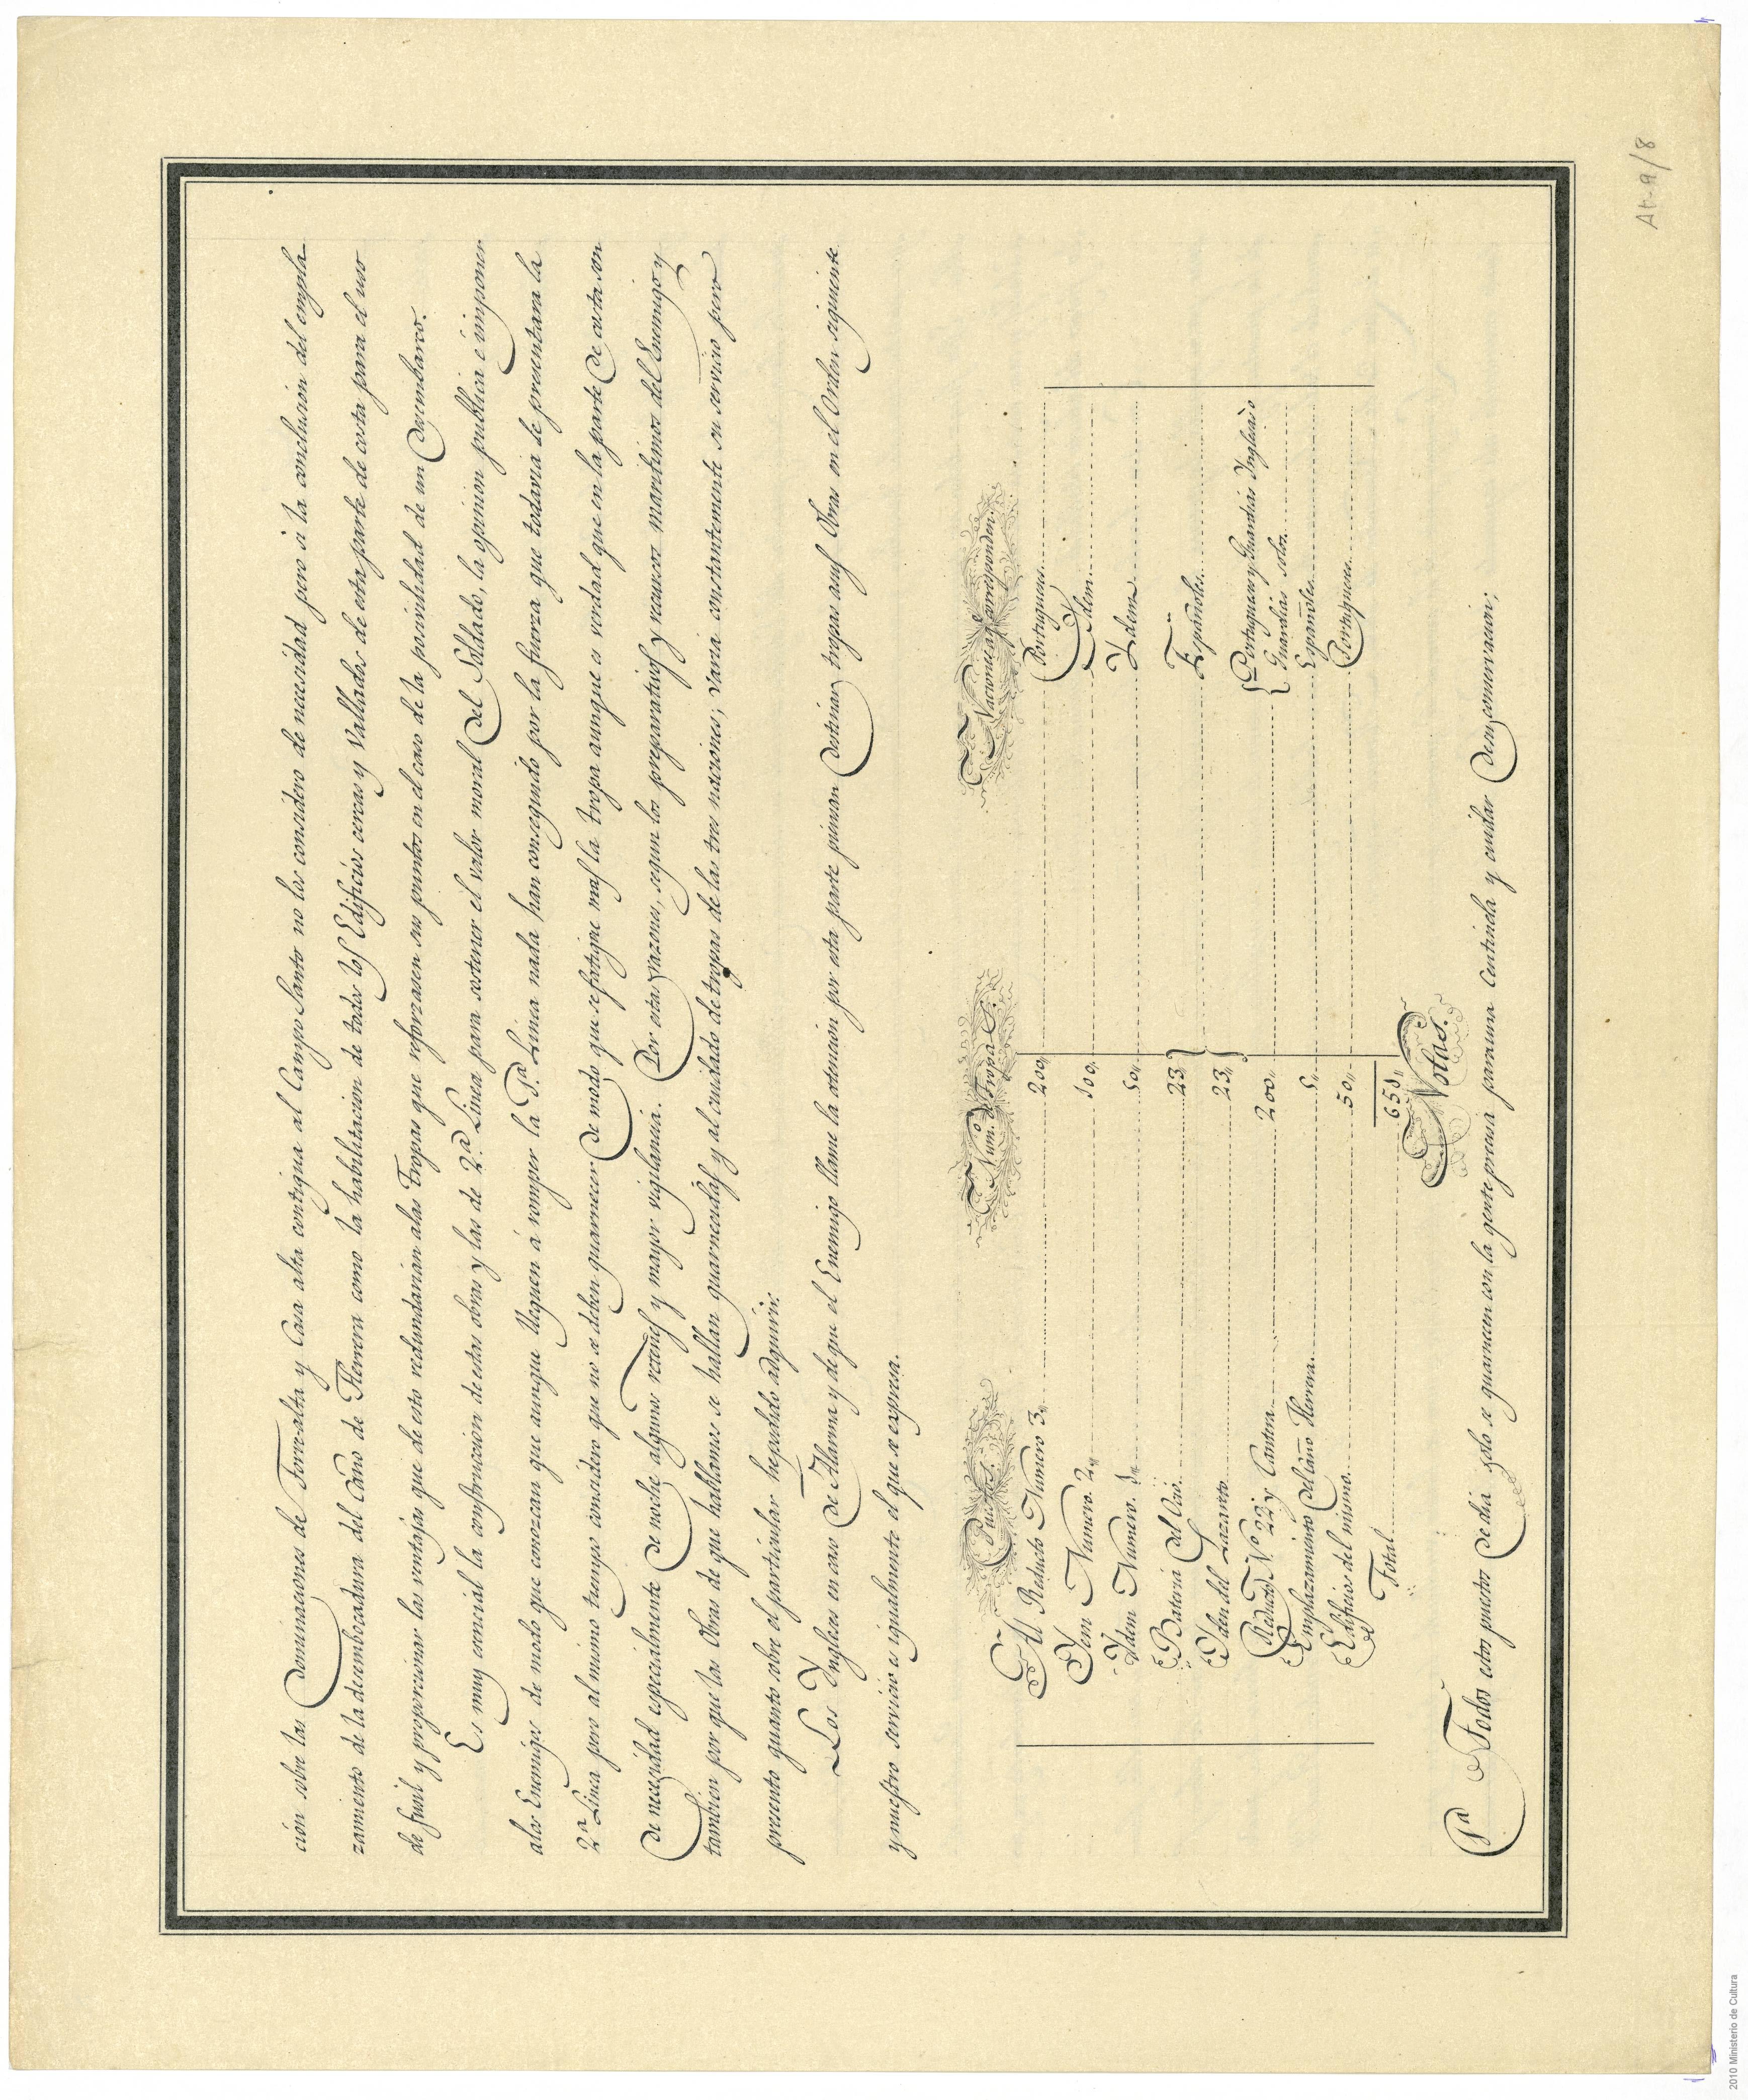 ción sobre las Dominaciones de Torre-alta y Casa alta contigua al Campo Santo no los considero de necesidad pero si la conclusion del empla-
zamiento de la desembocadura del Caño de Herrera como la habilitacion de todos los Edificios cercas y Vallados de esta parte de costa para el uso
de fusil y proporcionar las ventajas que de esto redundarian a las Tropas que reforzasen sus puntos en el caso de la posibilidad de un Desembarco.
Es muy esencial la construccion de estas obras y las de 2.ª Linea para sostener el valor moral del Soldado, la opinion publica é imponer
alos Enemigos de modo que conozcan que aunque lleguen á romper la 1.ª Linea nada han conseguido por la fuerza que todavia le presentara la
2.ª Linea pero al mismo tiempo considero que no se deben guarnecer de modo que se fatigue mas la tropa aunque es verdad que en la parte de costa son
de necesidad especialmente de noche algunos retenes y mayor vigilancia. Por estas razones, segun los preparativos y recursos maritimos del Enemigo y
tambien por que las Obras de que hablamos se hallan guarnecidas y al cuidado de tropas de las tres naciones; varia constantemente su servicio pero
presento quanto sobre el particular he podido adquirir.
Los Yngleses en caso de Alarma y de que el Enemigo llame la atencion por esta parte piensan destinar tropas a sus Obras en el Orden siguiente
y nuestro servicio es igualmente el que se expresa.
Puestos. Num.o de Tropa S. Naciones aq.e corresponden.
Al Reducto Numero 3,, 200,, Portugueses
Ydem Numero. 2,, 100,, Ydem
Ydem Numero. 1,, 50,, Ydem
Bateria del 23 Españoles
Ydem del Lazareto 23,,
Reducto N.º 22 y Cantera 200,, Portugueses y Guardias Ynglesas
Guardias solos
Emplazamiento del Caño Herrera 5,, Españoles
Edificios del mismo 50,, Portugueses
Total 651,,
Notas.
1.ª Todos estos puestos de dia solo se guarnecen con la gente precisa para una Centinela y cuidar de su conservacion;
At-9/8
2010 Ministerio de Cultura